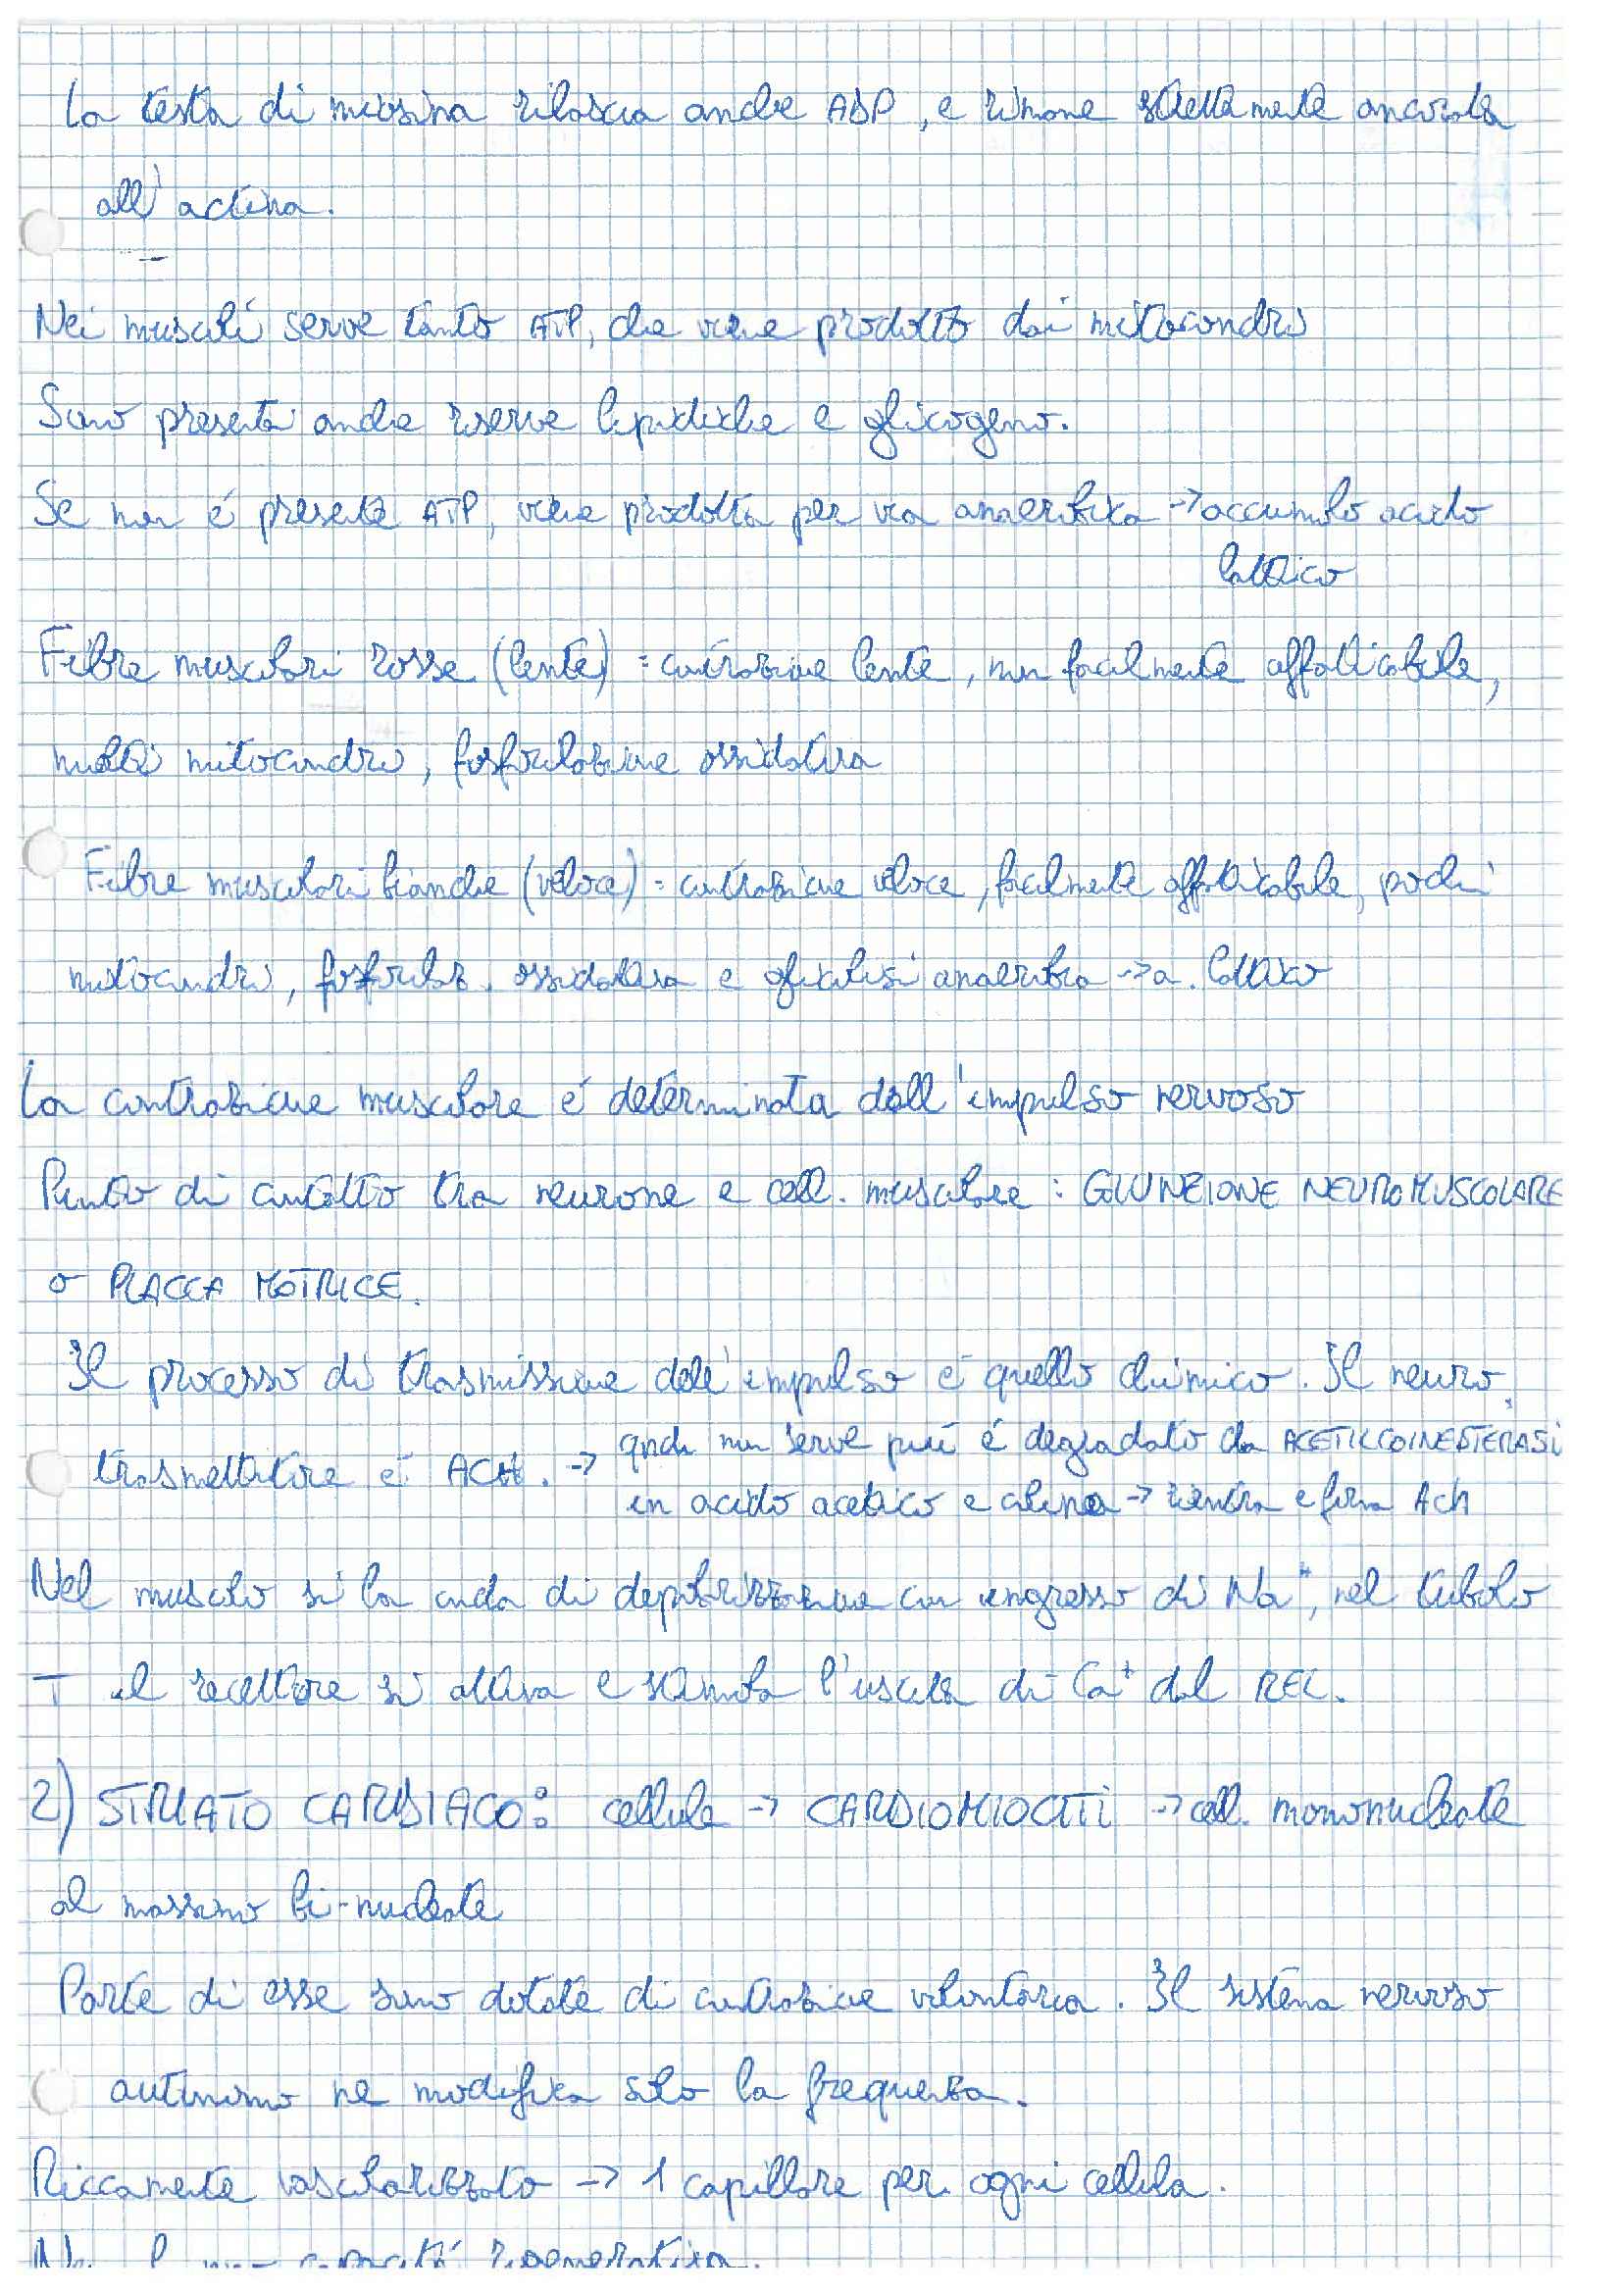 La testa di miosina rilascia anche ADP, e rimane strettamente ancorata
all'actina.
Nei muscoli serve tanto ATP, che viene prodotto dai mitocondri
Sono presenti anche riserve lipidiche e glicogeno.
Se non é presente ATP, viene prodotta per via anaerobica → accumulo acido
lattico
Fibre muscolari rosse (lente) = contrazione lente, non facilmente affaticabile,
molti mitocondri, fosforilazione ossidativa
Fibre muscolari bianche (veloce) = contrazione veloce, facilmente affaticabile, pochi
mitocondri, fosforilaz. ossidativa e glicolisi anaerobia → a. lattico
La contrazione muscolare é determinata dall'impulso nervoso
Punto di contatto tra neurone e cell. muscolare : GIUNZIONE NEUROMUSCOLARE
o PLACCA MOTRICE.
Il processo di trasmissione dell'impulso é quello chimico. Il neuro
trasmettitore é ACH. → qndo non serve piú é degradato da ACETILCOINESTERASI
in acido acetico e colina → rientra e forma ACh
Nel muscolo si ha onda di depolarizzazione con ingresso di Na⁺, nel tubolo
T il recettore si attiva e stimola l'uscita di Ca⁺ dal REL.
2) STRIATO CARDIACO: cellule → CARDIOMIOCITI → cell. mononucleate
al massimo bi-nucleate
Parte di esse sono dotate di contrazione volontaria. Il sistema nervoso
autonomo ne modifica solo la frequenza.
Riccamente vascolarizzato → 1 capillare per ogni cellula.
capacitá rigenerativa.